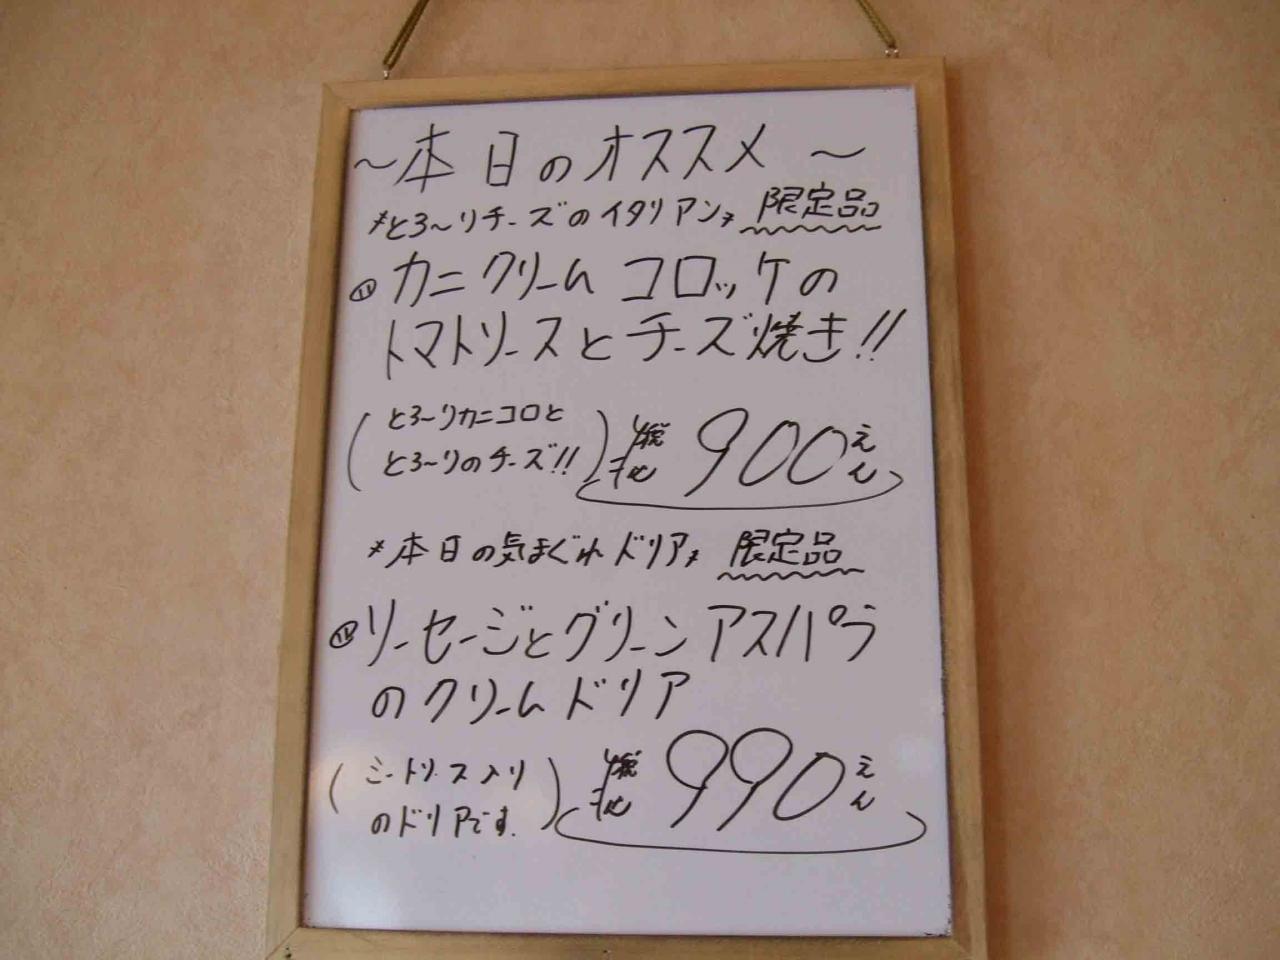 ～本日のオススメ～
*とろ～りチーズのイタリアン* 限定品
⑪カニクリームコロッケの
トマトソースとチーズ焼き!!
(とろ～りカニコロと
とろ～りのチーズ!!)
900えん
*本日の気まぐれドリア* 限定品
⑫ソーセージとグリーンアスパラ
のクリームドリア
(ミートソース入り
のドリアです.)
990えん